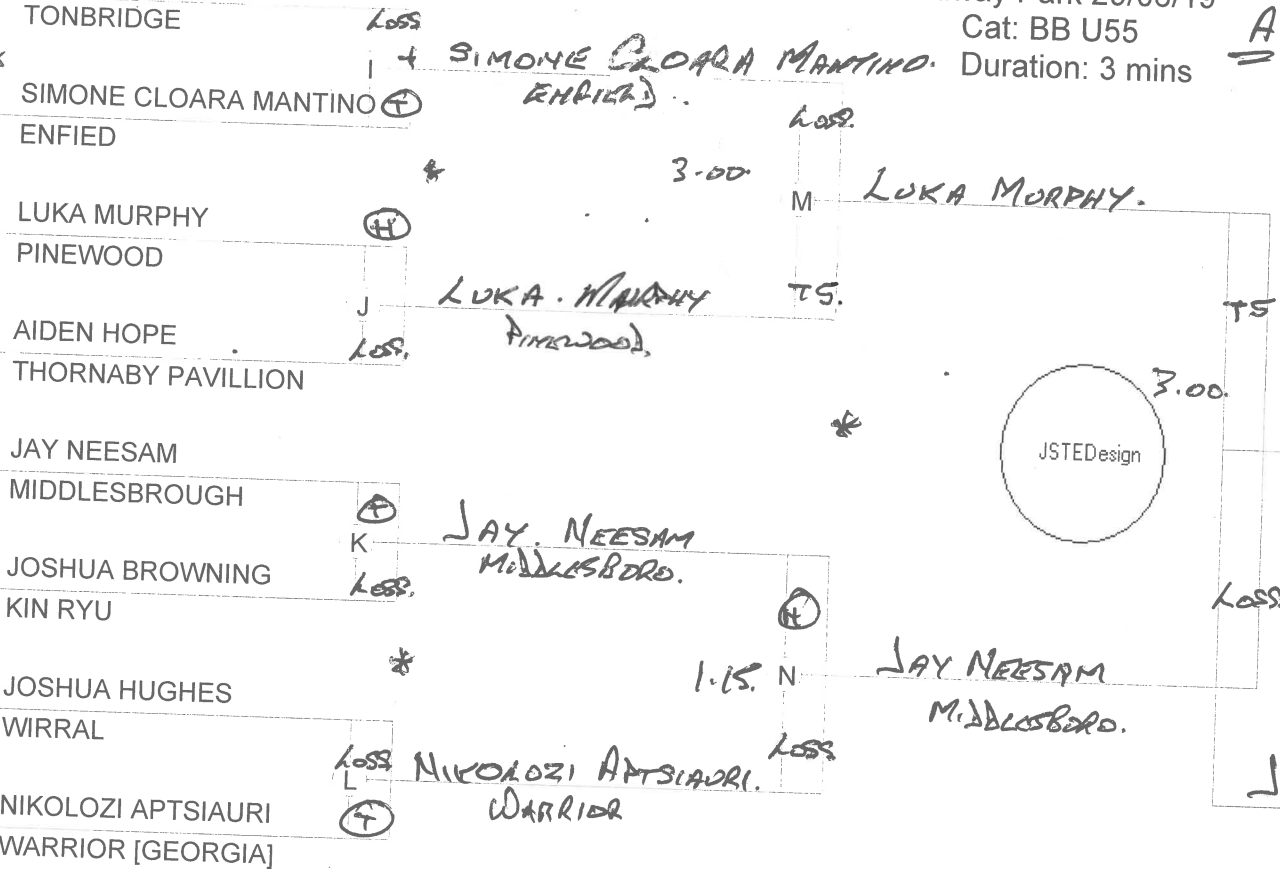 TONBRIDGE
Loss
Park 29/06/19
Cat: BB U55
Duration: 3 mins
A
I
SIMONE CLOARA MANTINO.
ENFIELD.
SIMONE CLOARA MANTINO
T
ENFIED
Loss.
3.00.
LUKA MURPHY
H
PINEWOOD
M
LUKA MURPHY.
J
LUKA. MURPHY
PINEWOOD.
TS.
TS
AIDEN HOPE
Loss.
THORNABY PAVILLION
3.00.
JSTEDesign
JAY NEESAM
MIDDLESBROUGH
T
K
JAY. NEESAM
MIDDLESBORO.
JOSHUA BROWNING
Loss.
KIN RYU
H
Loss
1.15.
N
JAY NEESAM
MIDDLESBORO.
JOSHUA HUGHES
WIRRAL
Loss
L
NIKOLOZI APTSIAURI.
WARRIOR
Loss
NIKOLOZI APTSIAURI
T
WARRIOR [GEORGIA]
J